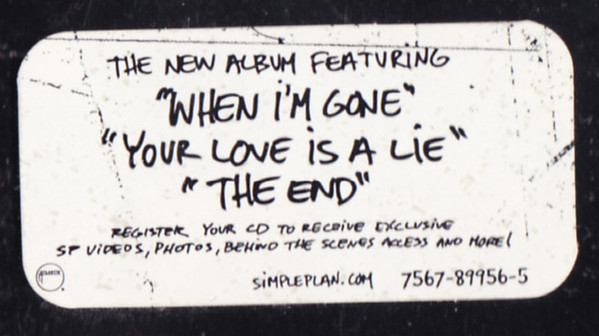 THE NEW ALBUM FEATURING
"WHEN I'M GONE"
"YOUR LOVE IS A LIE"
"THE END"
REGISTER YOUR CD TO RECEIVE EXCLUSIVE
SP VIDEOS, PHOTOS, BEHIND THE SCENES ACCESS AND MORE!
SIMPLEPLAN.COM 7567-89956-5